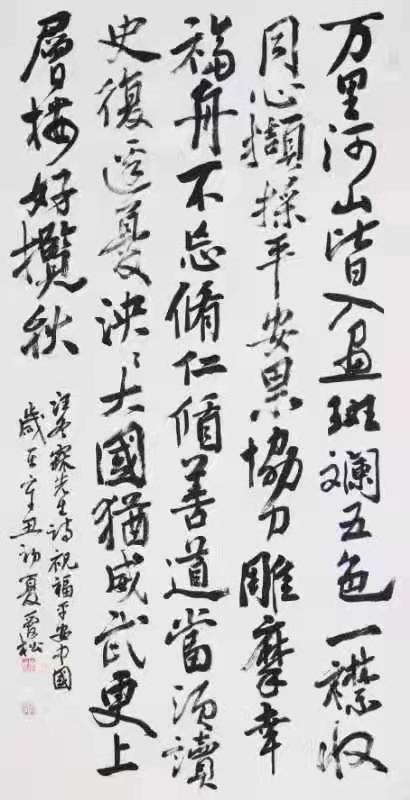 万里河山皆入畫斑斓五色一襟收
同心擷採平安果協力雕摩幸
福舟不忘脩仁脩善道當須讀
史復憂泱泱大國猶威武更上
層樓好攬秋
先生詩祝福平安中國
歲在辛丑初夏松